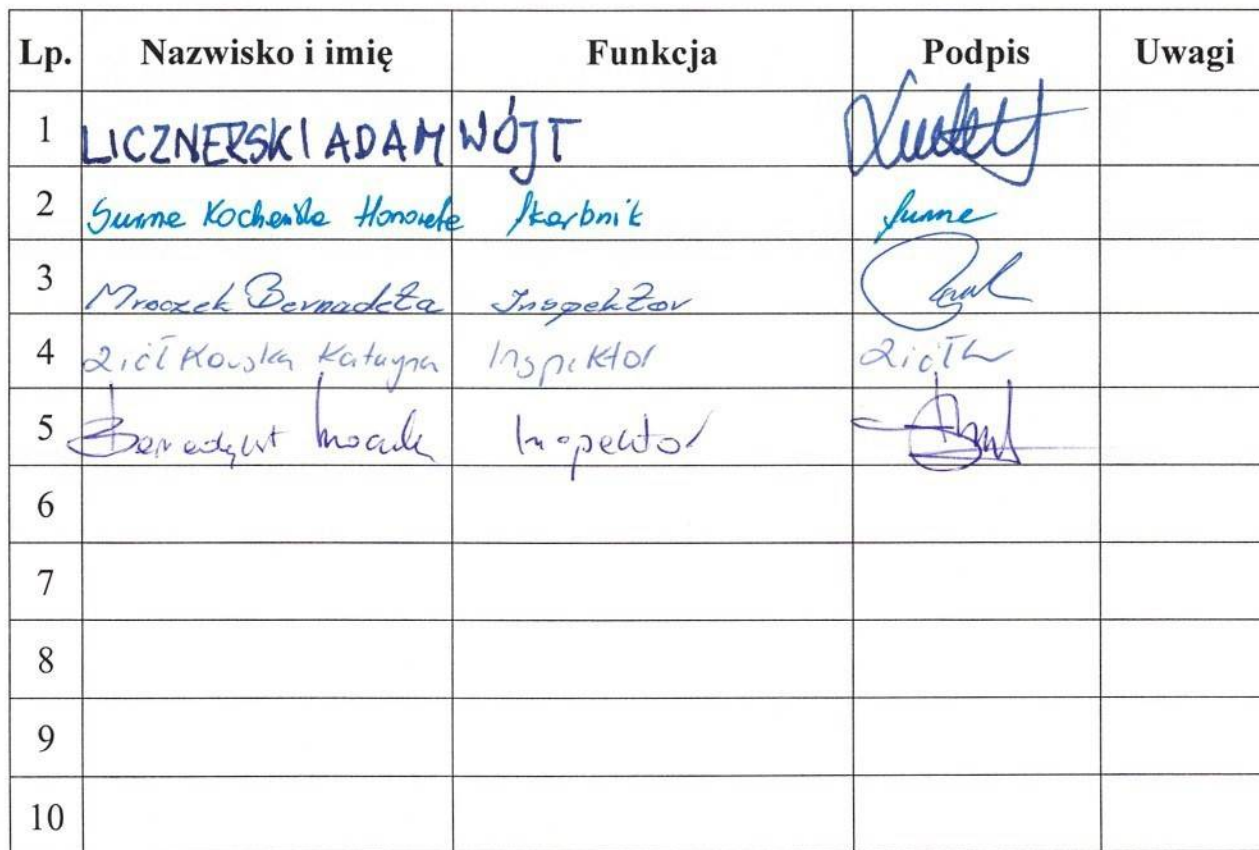 Lp. Nazwisko i imię Funkcja Podpis Uwagi
1 LICZNERSKI ADAM WÓJT
2 Kocheńska Honorata Skarbnik
3 Mroczek Bernadeta Inspektor
4 Ziółkowska Katarzyna Inspektor
5 Benedykt Inspektor
6
7
8
9
10